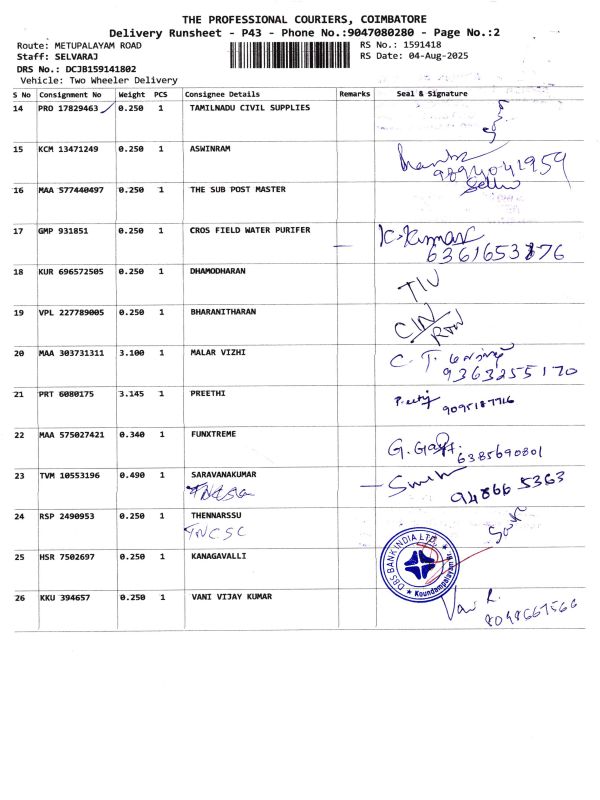 THE PROFESSIONAL COURIERS, COIMBATORE
Delivery Runsheet - P43 - Phone No.:9047080280 - Page No.:2
Route: METUPALAYAM ROAD RS No.: 1591418
Staff: SELVARAJ RS Date: 04-Aug-2025
DRS No.: DCJB159141802
Vehicle: Two Wheeler Delivery
S No Consignment No Weight PCS Consignee Details Remarks Seal & Signature
14 PRO 17829463 0.250 1 TAMILNADU CIVIL SUPPLIES
15 KCM 13471249 0.250 1 ASWINRAM
9894041959
16 MAA 577440497 0.250 1 THE SUB POST MASTER
17 GMP 931851 0.250 1 CROS FIELD WATER PURIFER K. Kumar
18 KUR 696572505 0.250 1 DHAMODHARAN
19 VPL 227789005 0.250 1 BHARANITHARAN
20 MAA 303731311 3.100 1 MALAR VIZHI C. T.
9363255170
21 PRT 6080175 3.145 1 PREETHI
9095187716
22 MAA 575027421 0.340 1 FUNXTREME
6385690801
23 TVM 10553196 0.490 1 SARAVANAKUMAR
94866 5363
24 RSP 2490953 0.250 1 THENNARSSU
TNCSC
25 HSR 7502697 0.250 1 KANAGAVALLI
DBS BANK INDIA LTD.
26 KKU 394657 0.250 1 VANI VIJAY KUMAR